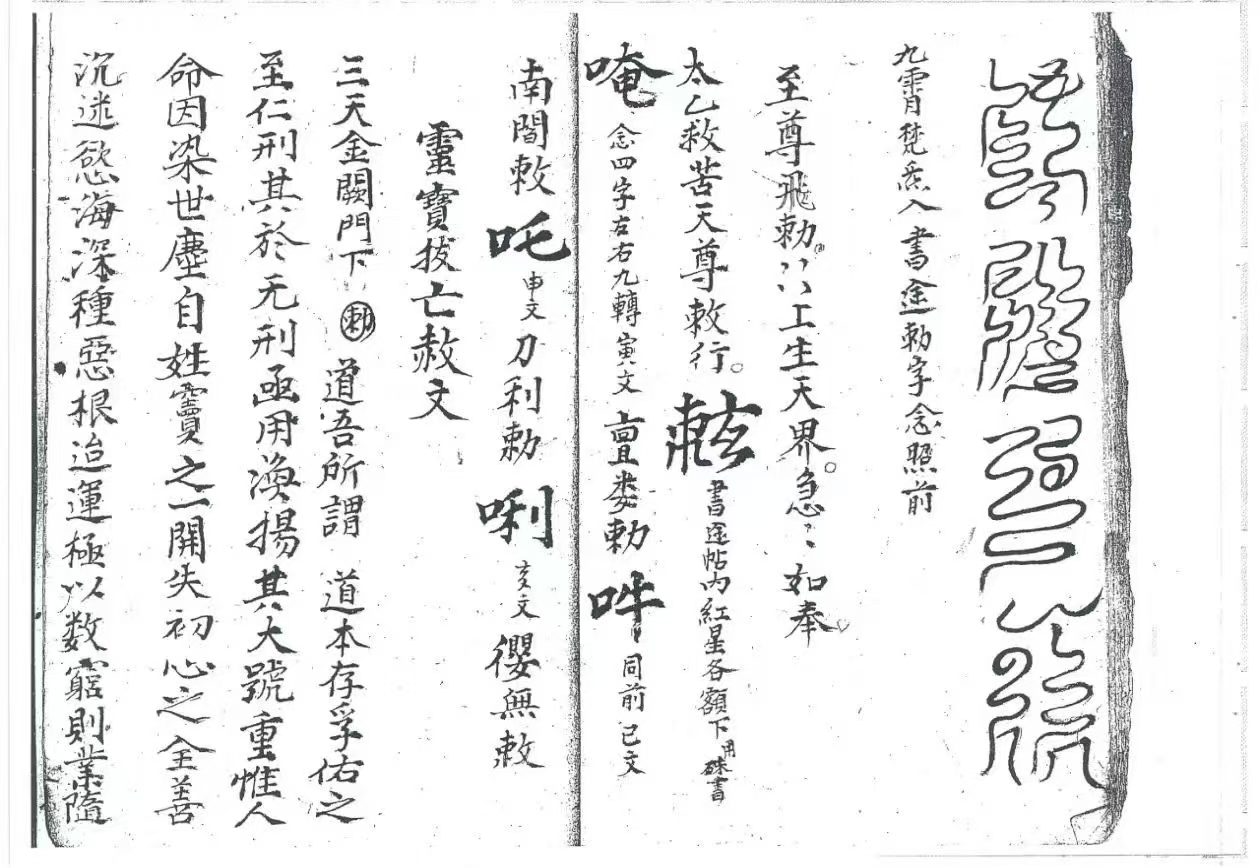 九霄梵炁入書途勅字念照前
至尊飛勅。〻工生天界。急〻如奉。
太乙救苦天尊敕行。 書途帖内紅星各額下用硃書
唵 念四字右右九轉寅文 亶婁勅 吽 同前已文
南閻敕 吒 申文 刀利勅 唎 亥文 㣎無敕
靈寶拔亡赦文
三天金闕門下 勅 道吾所謂 道本存孚佑之
至仁刑其於无刑亟用渙揚其大號重惟人
命因染世塵自姓竇之一開失初心之全善
沉迷慾海深種惡根迨運極以数窮則業隨